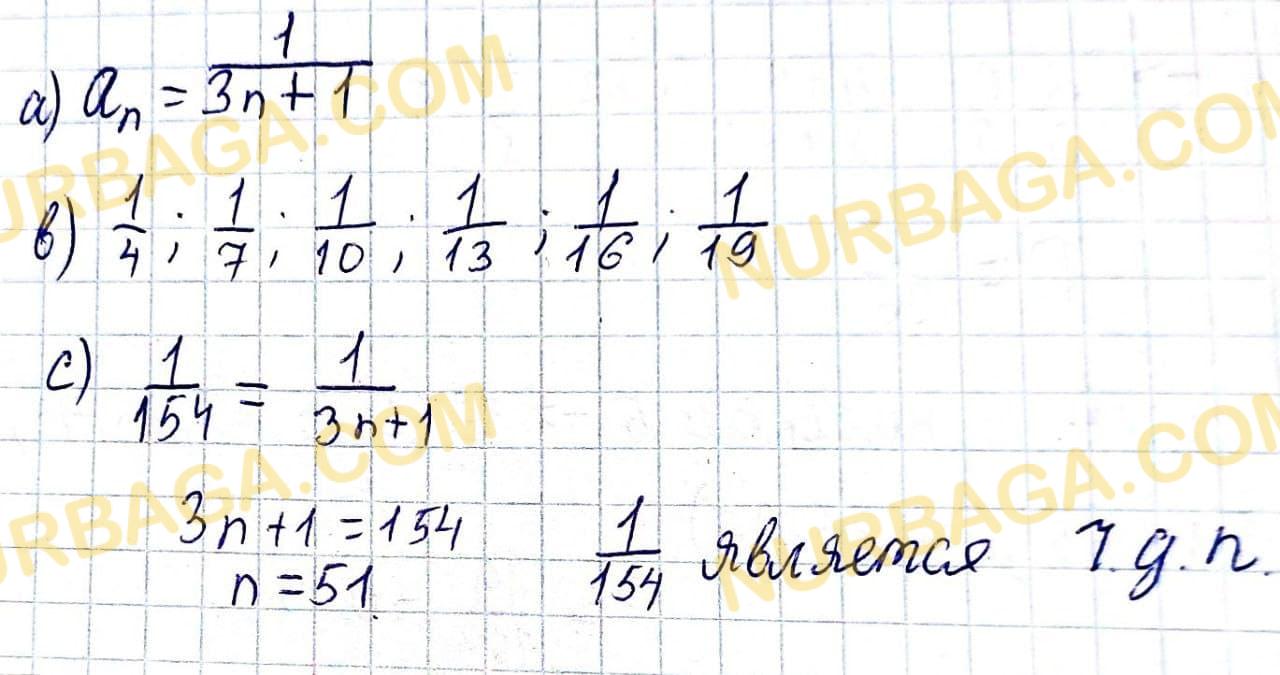 а) aₙ = 1/(3n+1)
в) 1/4 ; 1/7 ; 1/10 ; 1/13 ; 1/16 ; 1/19
с) 1/154 = 1/(3n+1)
3n+1=154
n=51 1/154 является ч.д.п.
NURBAGA.COM
NURBAGA.COM
NURBAGA.COM
NURBAGA.COM